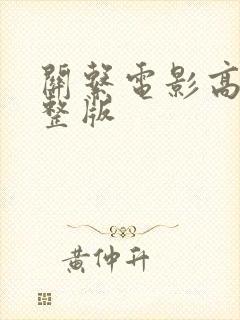 關繫電影高
整版
黃仲升